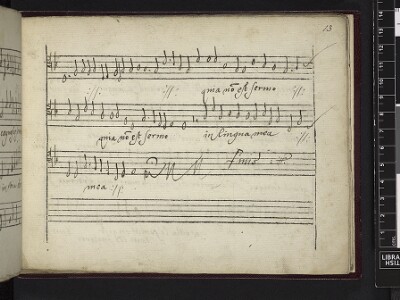 13
://: :// quia nō est sermo ://:
quia nō est sermo in lingua mea ://:
mea ://: Finis
LIBRA